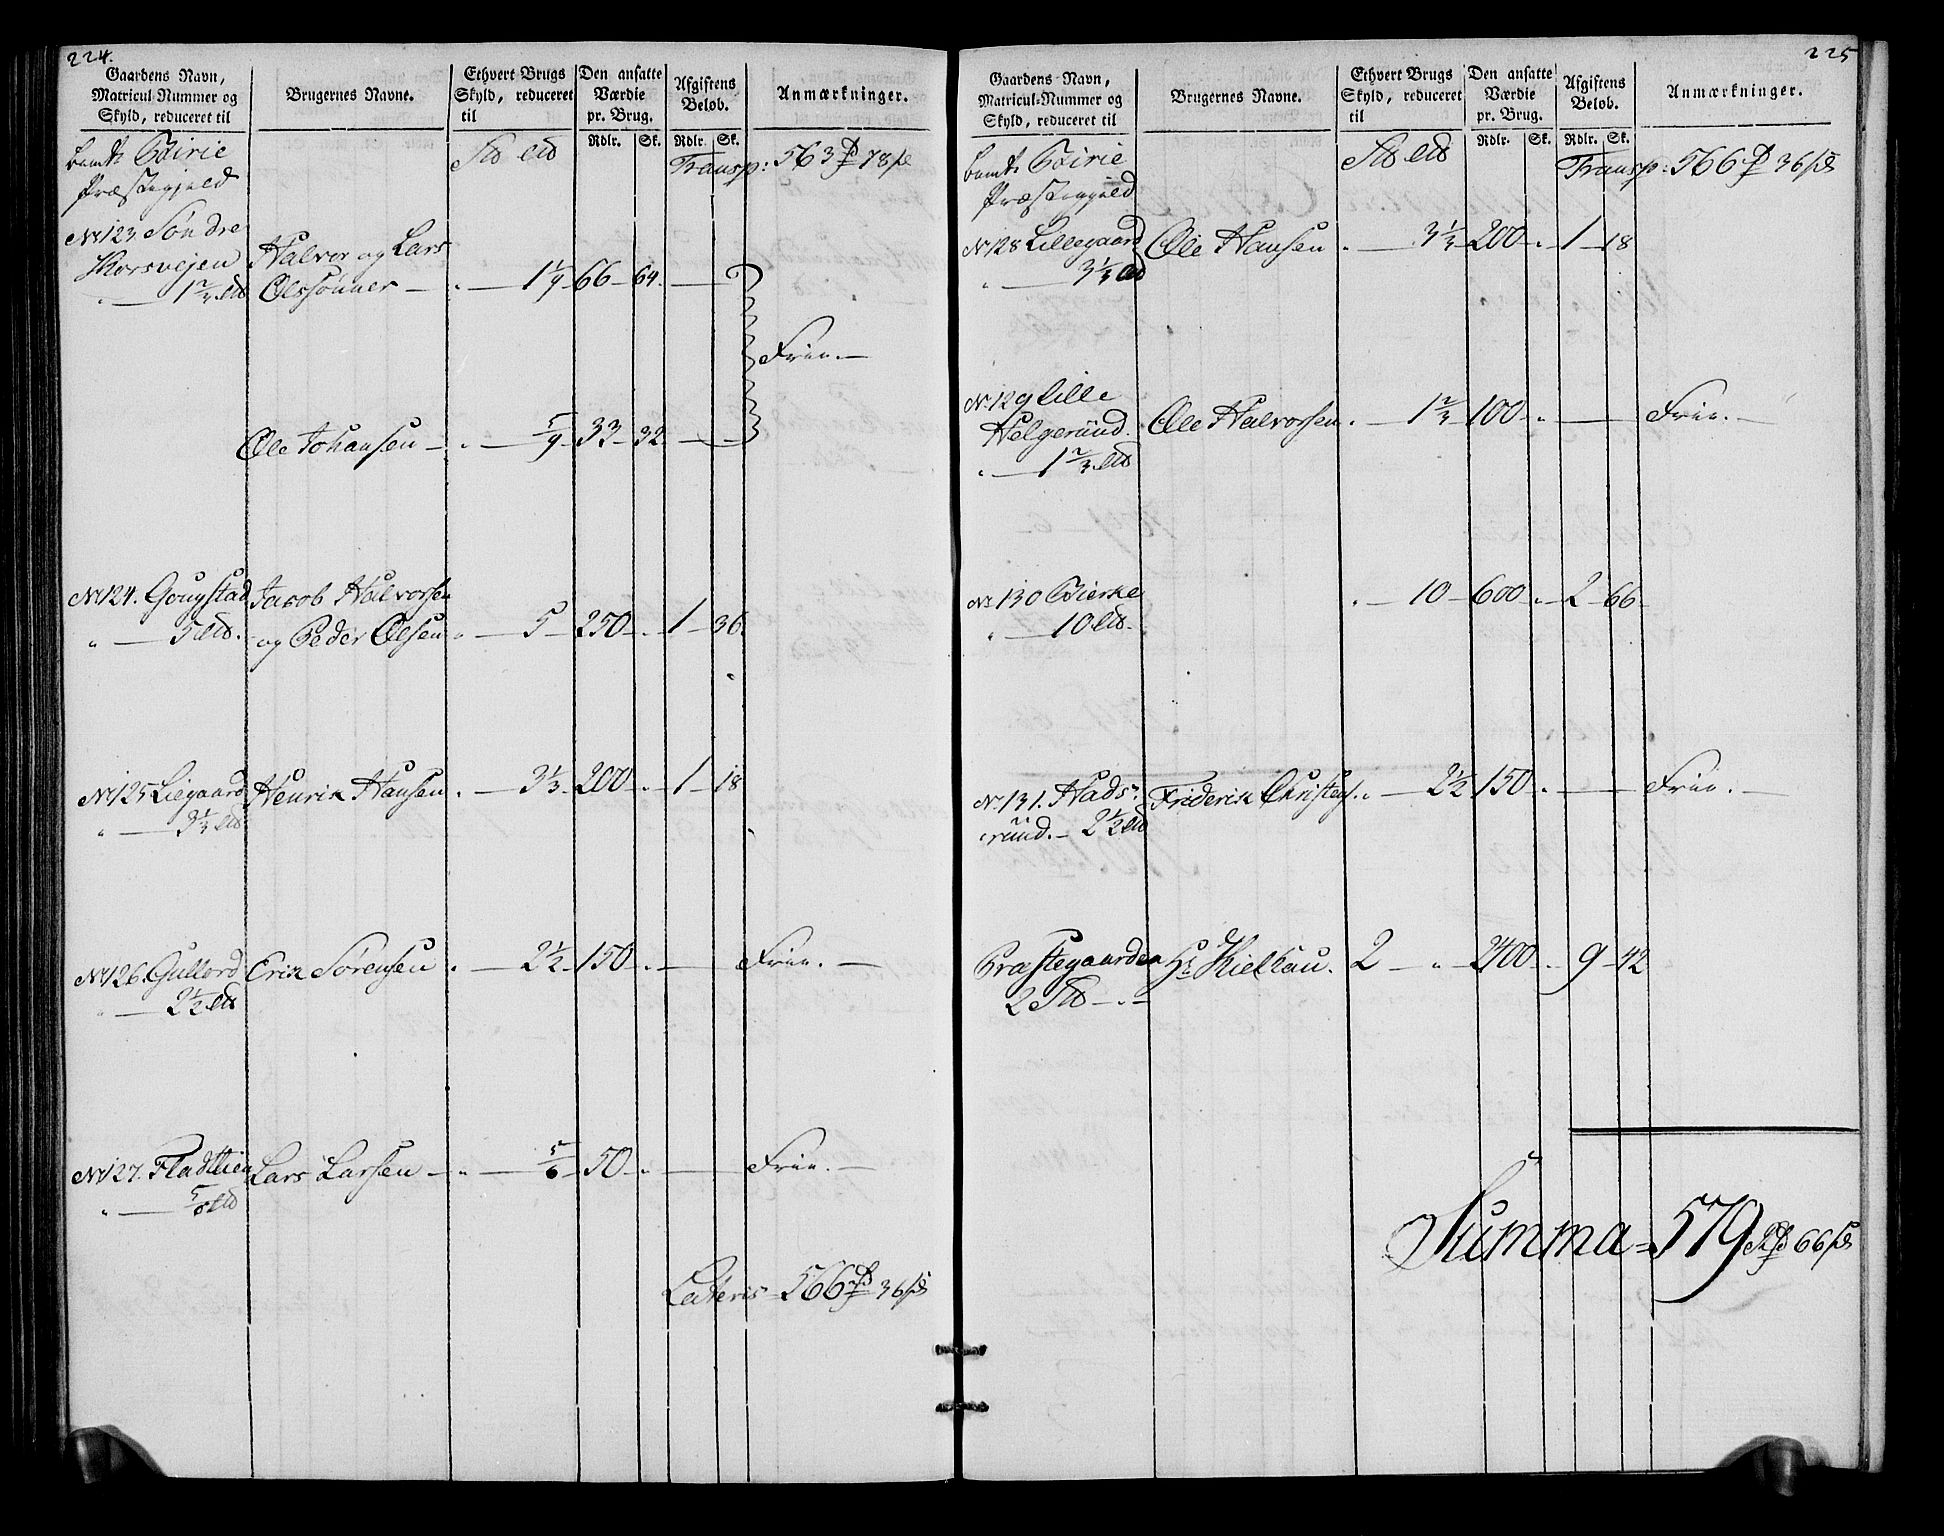 224.
Gaardens Navn,
Matricul-Nummer og
Skyld, reduceret til
Brugernes Navne.
Ethvert Brugs
Skyld, reduceret
til
Den ansatte
Værdie
pr. Brug.
Rdlr. Sk.
Afgiftens
Beløb.
Rdlr. Sk.
Anmærkninger.
bemte Birie
Præstegjeld
Transp: 563 78
No 123 Søndre
Korsvejen
Halvor og Lars
Olssønner — " — 1 1/9 66 64
" — 1 2/3
Friie. —
Ole Johansen — " — 5/9 33 32
No 124. Gougstad Jacob Halvorsen
" — 5 og Peder Olsen " — 5 250 " 1 36
No 125 Liegaard Henrik Hansen " — 3 1/3 200 " 1 18
" — 3 1/3
No 126. Gullord Erik Sørensen " — 2 1/2 150 " — Friie. —
" — 2 1/2
No 127. Fladlien Lars Larsen — " — 5/6 50 " — Friie. —
" — 5/6
Lateris 566 36
225
Gaardens Navn,
Matricul-Nummer og
Skyld, reduceret til
Brugernes Navne.
Ethvert Brugs
Skyld, reduceret
til
Den ansatte
Værdie
pr. Brug.
Rdlr. Sk.
Afgiftens
Beløb.
Rdlr. Sk.
Anmærkninger.
bemte Birie
Præstegjeld
Transp: 566 36
No 128 Lillegaard Ole Hansen " — 3 1/3 200 " 1 18
" — 3 1/3
No 129 Lille
Helgerund Ole Halvorsen " — 1 2/3 100 " — Friie. —
" — 1 2/3
No 130 Bierke " — 10 600 " 2 66
" — 10
No 131. Hads-
rund. — 2 1/2 Friderik Christens. " — 2 1/2 150 " — Friie. —
Præstegaarden Hr Kielsau. 2 — " 2400 " 9 42
2 — " —
Summa = 579 66